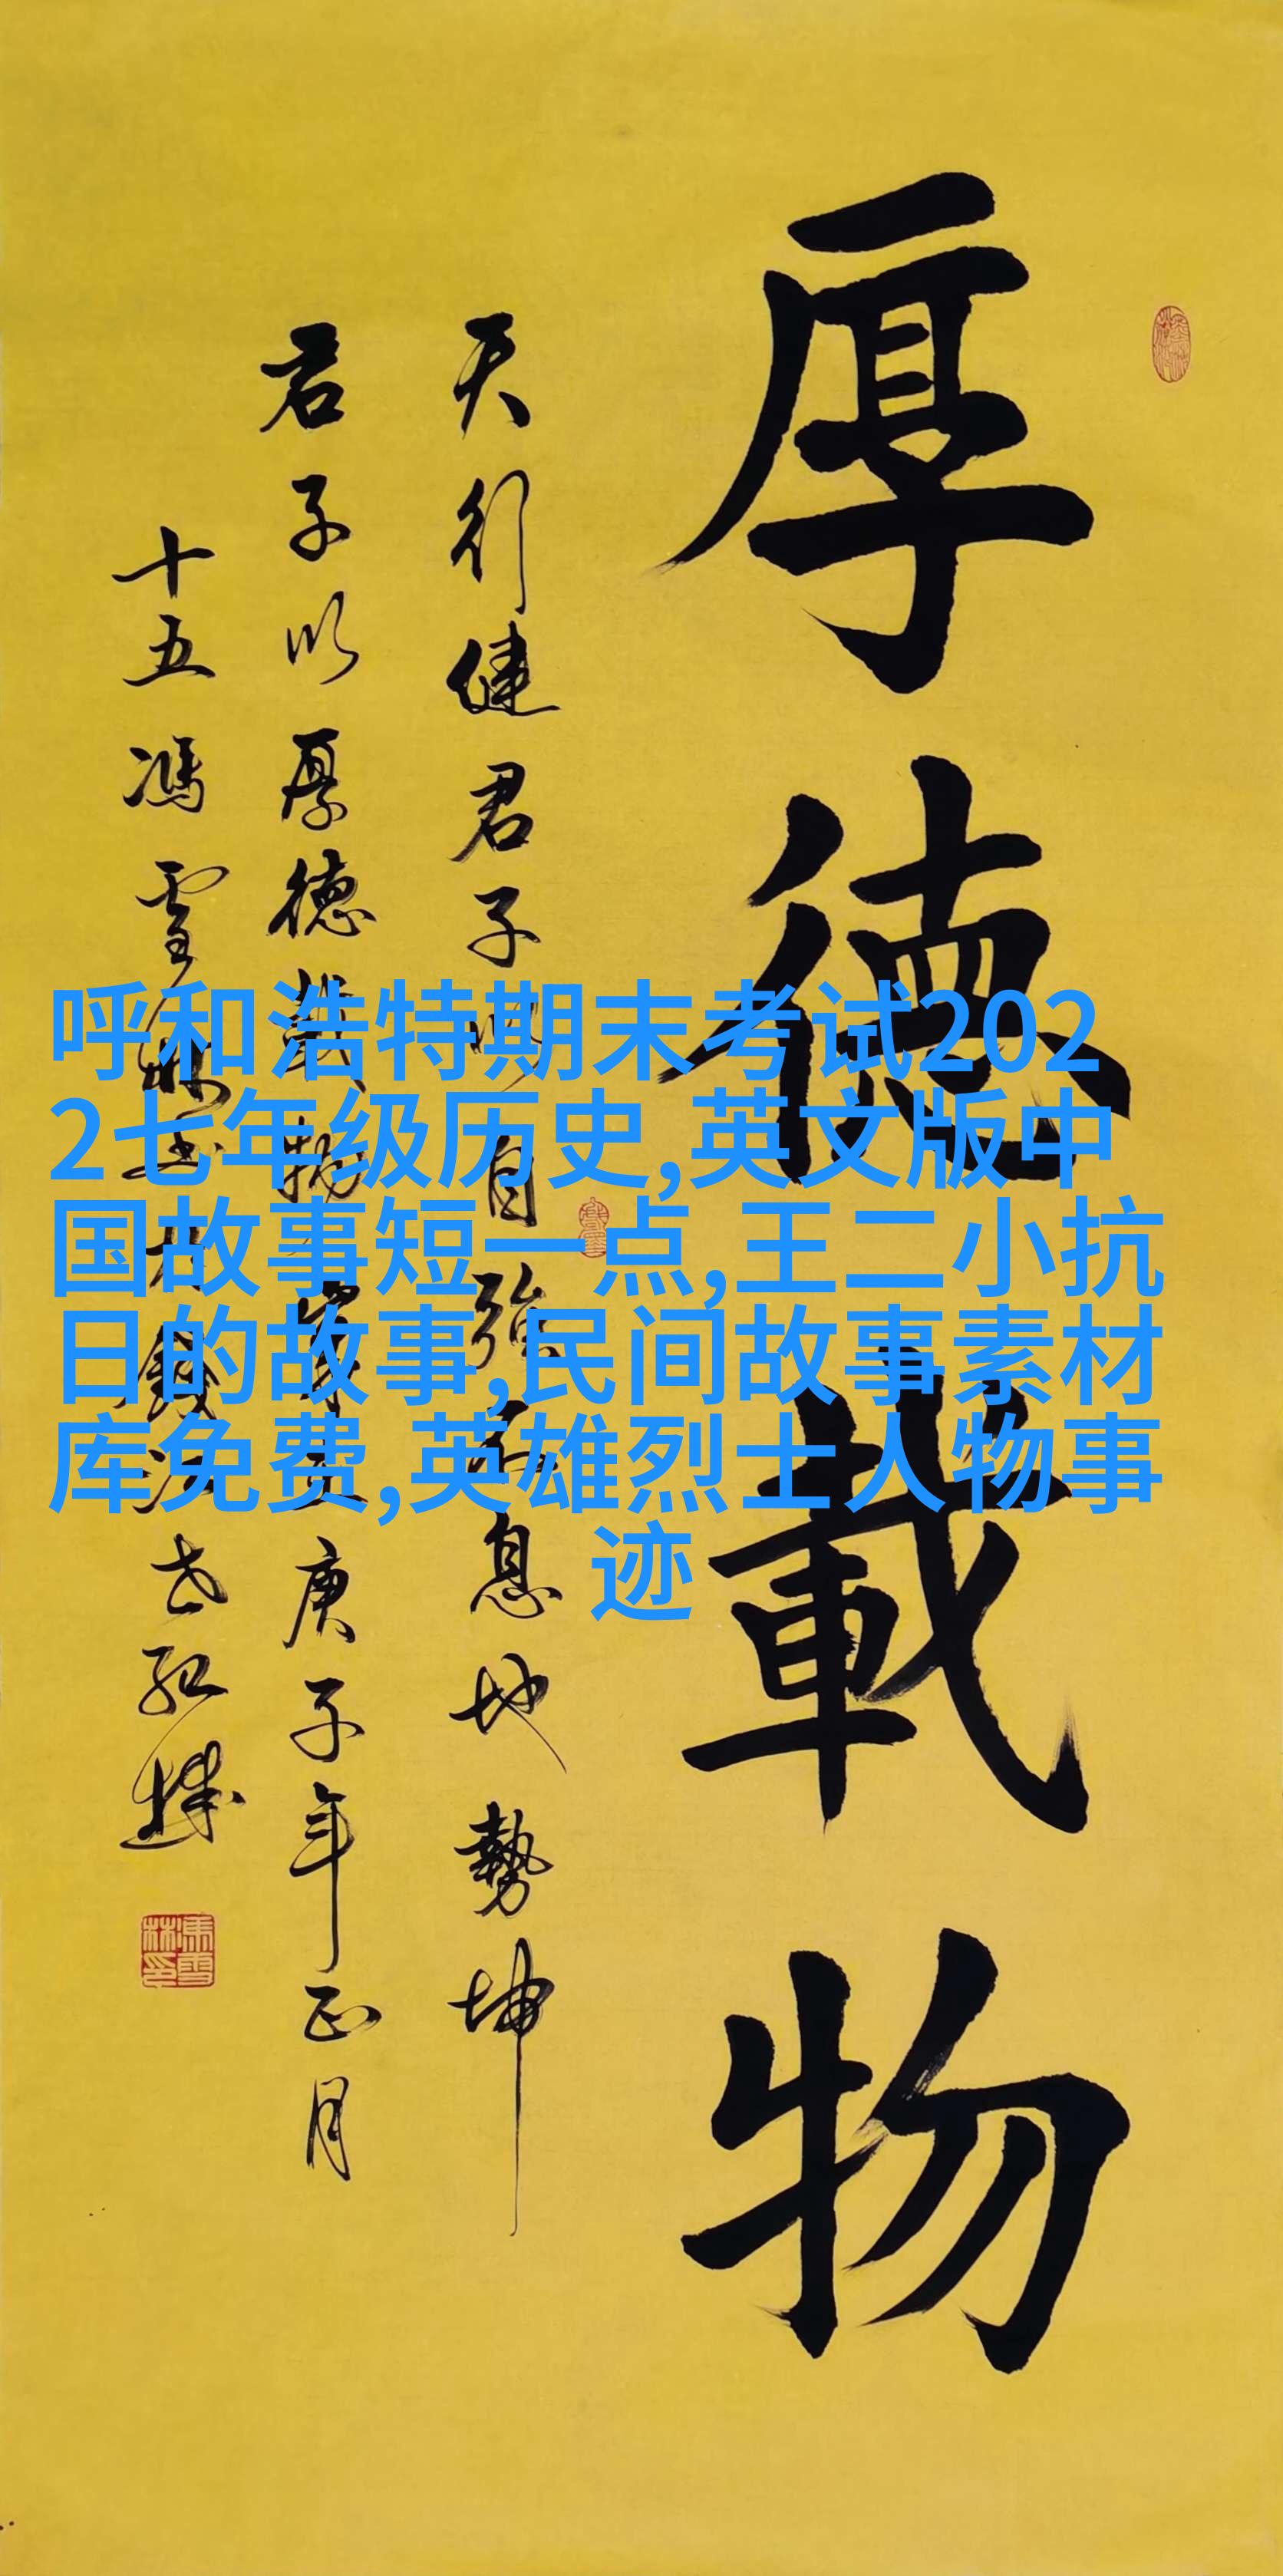 厚德載物
天行健君子以自強不息地勢坤
君子以厚德載物 庚子年正月
十五馮雪林
呼和浩特期末考试202
2七年级历史,英文版中
国故事短一点,王二小抗
日的故事,民间故事素材
库免费,英雄烈士人物事
迹
馮雪林印